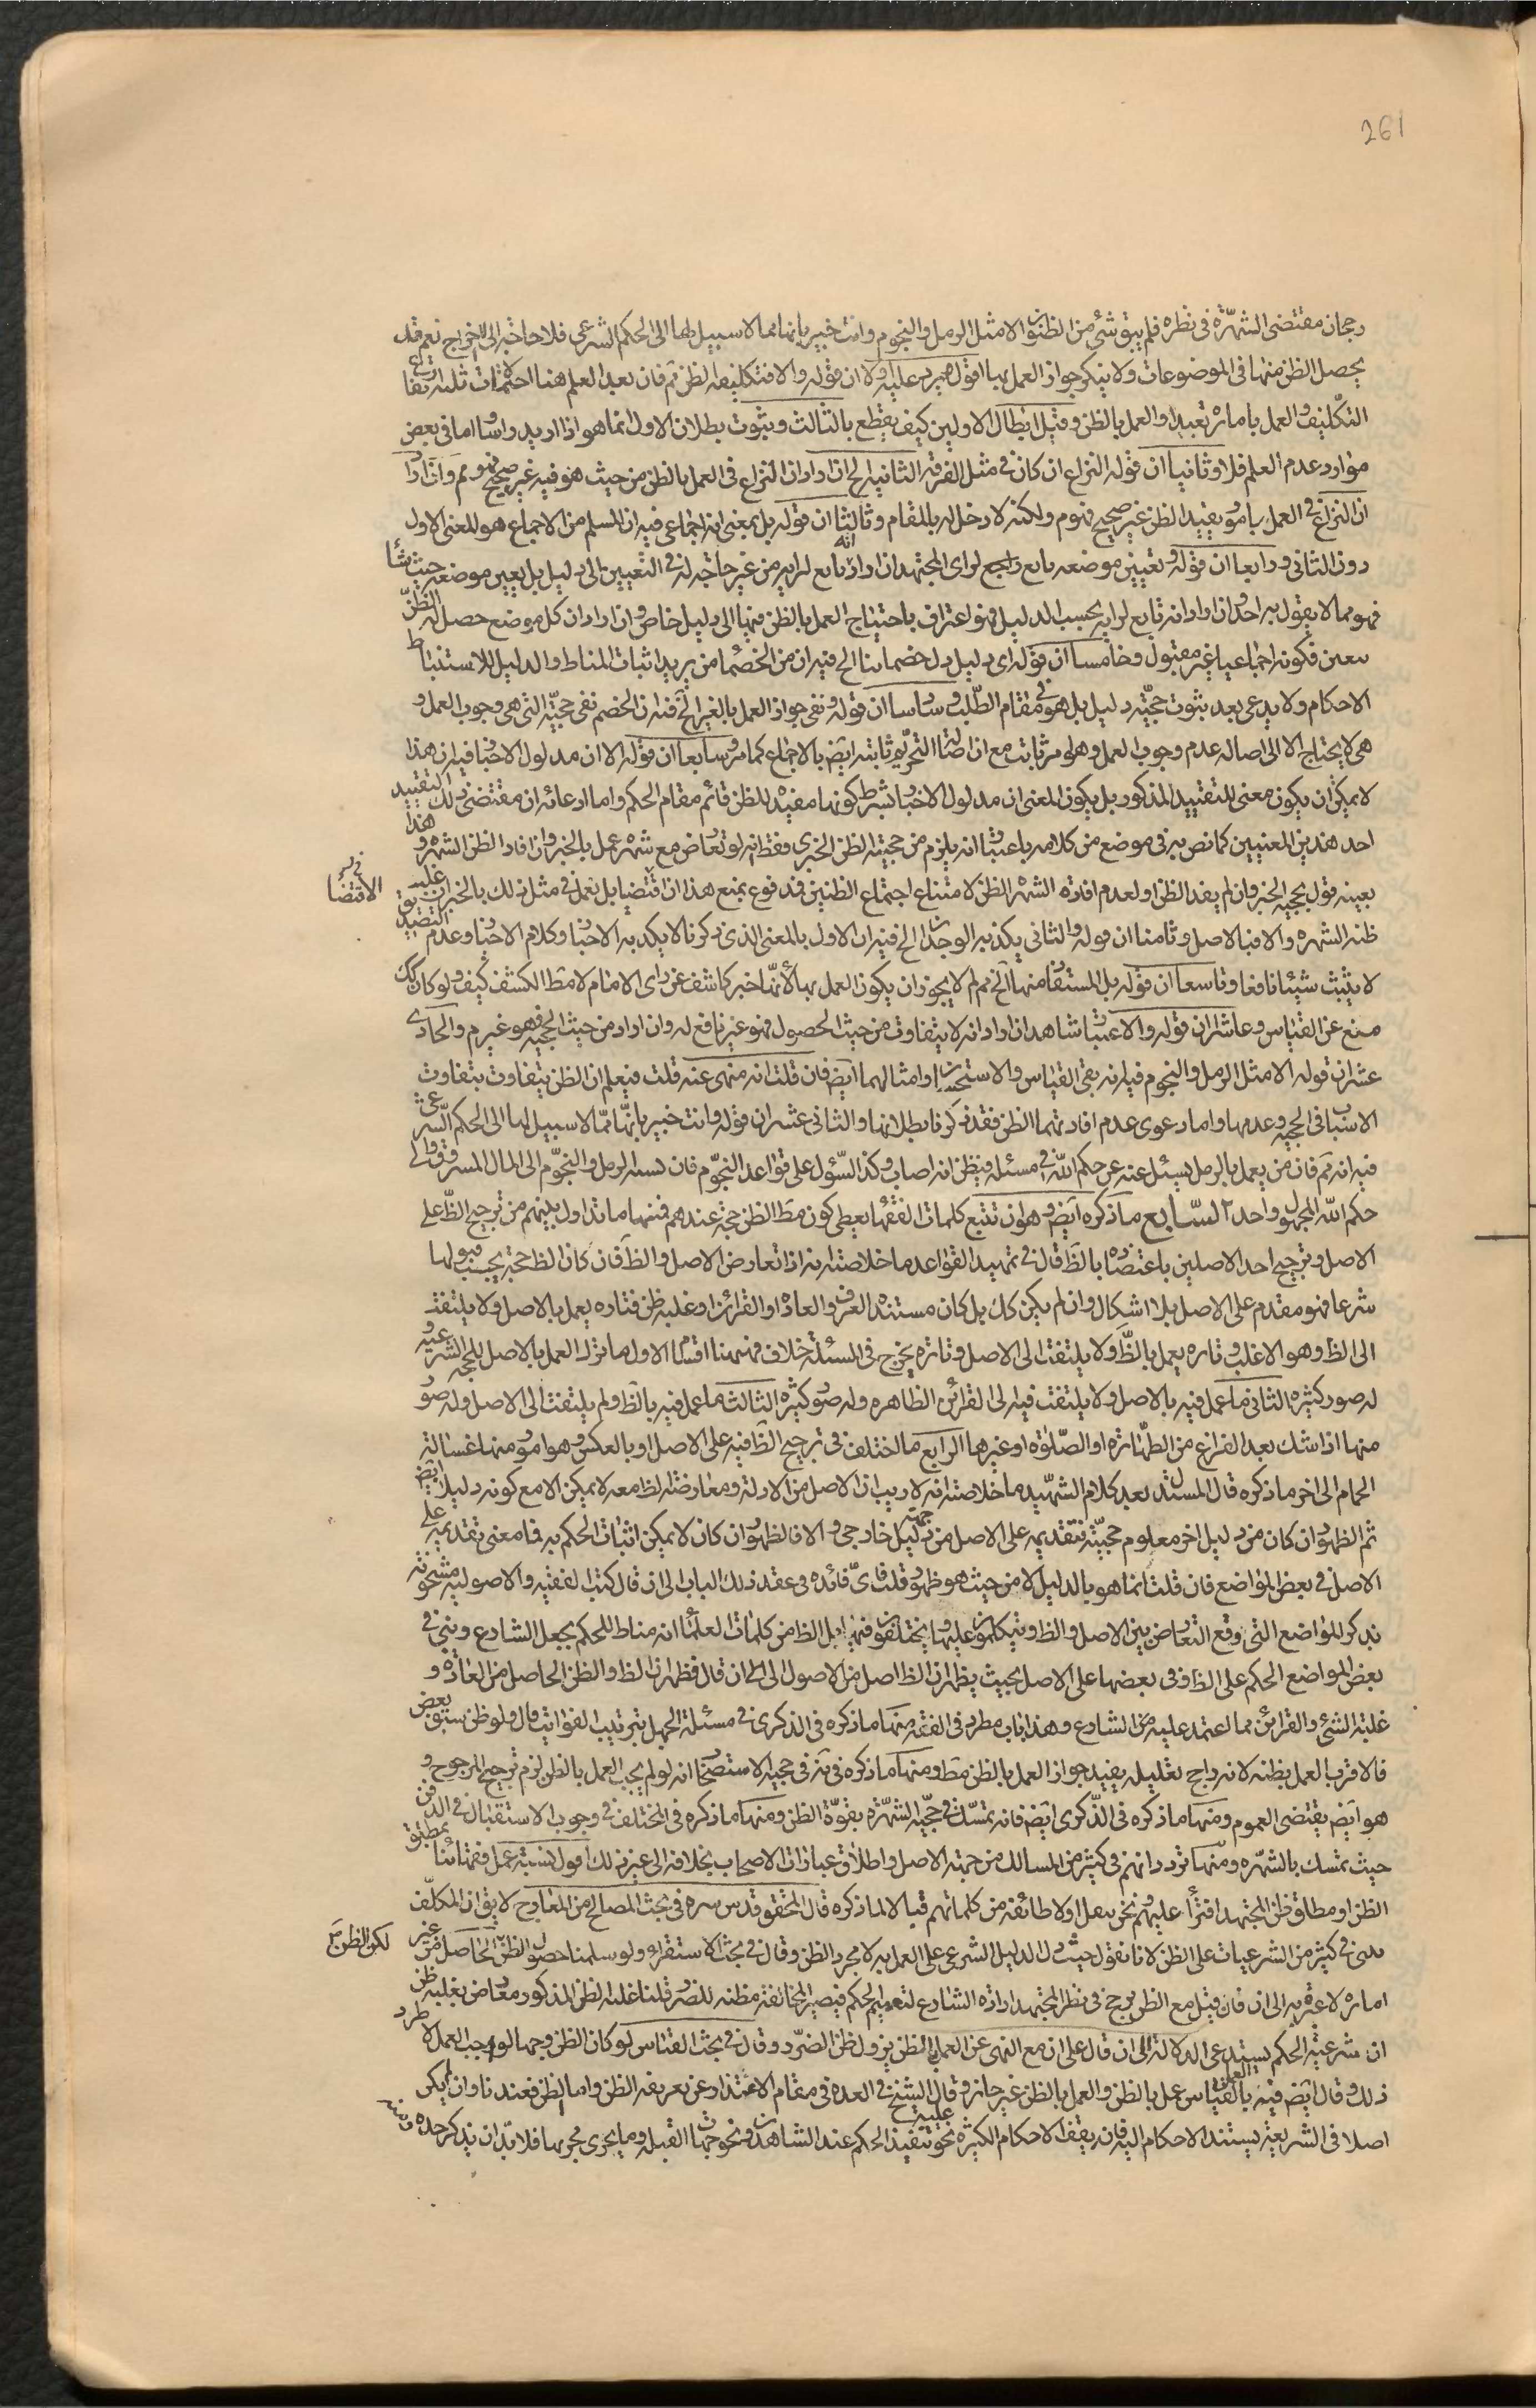 261
رجحان مقتضى الشهرة فى نظره فلم يبق شئ من الظنون الا مثل الرمل والنجوم وانت خبير بانها مما لا سبيل لها الى الحكم الشرعى فلا حاجة الى الاخراج نعم قد
يحصل الظن منها فى الموضوعات ولا ينكر جواز العمل بها اقول يرد عليه اولا ان قوله والا فتكليفه الظن ثم فان بعد العلم هنا احتمالات ثلثة ارتفاع
التكليف والعمل بامارة تعبدا والعمل بالظن وقبل ابطال الاولين كيف يقطع بالثالث وثبوت بطلان الاول انما هو اذا اريد راسا واما فى بعض
موارد عدم العلم فلا وثانيا ان قوله النزاع ان كان فى مثل الفرقة الثانية الخ ان اراد ان النزاع فى العمل بالظن من حيث هو فيه غير صحيح فهو مم وان اراد
ان النزاع فى العمل بامور يفيد الظن غير صحيح فهو م ولكنه لا دخل له بالمقام وثالثا ان قوله بل بمعنى انه اجماعى فيه ان المسلم من الاجماع هو المعنى الاول
دون الثانى ورابعا ان قوله وتعيين موضعه تابع راجع لراى المجتهد ان اراد انه تابع لرايه من غير حاجة له فى التعيين الى دليل بل يعين موضعه حيث شا
فهو مما لا يقول به احد وان اراد انه تابع لرايه بحسب الدليل فهو اعتراف باحتياج العمل بالظن فيها الى دليل خاص وان اراد ان كل موضع حصل له الظن
تعين فكونه اجماعيا غير مقبول وخامسا ان قوله اى دليل دل خصمائنا الخ فيه ان من الخصماء من يريد اثبات المناط والدليل للاستنباط
الاحكام ولا يدعى بعد ثبوت حجية دليل بل هو فى مقام الطلب وسادسا ان قوله ونفى جواز العمل بالغير الخ فيه ان الخصم نفى حجية التى هى وجوب العمل و
هى لا يحتاج الا الى اصالة عدم وجوب العمل وهو امر ثابت مع ان اصالة التحريم ثابتة ايض بالاجماع كما مر وسابعا ان قوله الا ان مدلول الاخبار فيه ان هذا
لا يمكن ان يكون معنى للتقييد المذكور بل يكون المعنى ان مدلول الاخبار بشرط كونها مفيدة للظن قائم مقام الحكم واما ادعائه ان مقتضى ذلك التقييد
احد هذين المعنيين كما نص به فى موضع من كلامه باعتبار انه يلزم من حجية الظن الخبرى فقط انه لو تعارض مع شهرة عمل بالخبر وان افاد الظن الشهرة وهذا
بعينه قول بحجية الخبر وان لم يفد الظن او لعدم افادة الشهرة الظن لامتناع اجتماع الظنين فمدفوع بمنع هذا الاقتضا بل نعمل فى مثل ذلك بالخبر ان لم يق عليه
ظنه الشهرة والا فبالاصل وثامنا ان قوله والثانى يكذبه الوجدان الخ فيه ان الاول بالمعنى الذى ذكرنا لا يكذبه الاخبار وكلام الاخيار وعدم التقييد
لا يثبت شيئا نافعا وتاسعا ان قوله بل المستفاد منها الخ مم لم لا يجوز ان يكون العمل بها لانها خبر كاشف عن راى الامام لا مط الكشف كيف ولو كان كك
منع عن القياس وعاشرا ان قوله والاعتبار شاهد ان اراد انه لا يتفاوت من حيث الحصول فهو غير نافع له وان اراد من حيث الحجية فهو غير م والحادى
عشر ان قوله الا مثل الرمل والنجوم فيه انه بقى القياس والاستحسان وامثالهما ايض فان قلت انه منهى عنه قلت فيعلم ان الظن يتفاوت بتفاوت
الاسباب فى الحجية وعدمها واما دعوى عدم افادتهما الظن فقد ذكرنا بطلانها والثانى عشر ان قوله وانت خبير بانها مما لا سبيل لها الى الحكم الشرعى
فيه انه ثم فان من يعمل بالرمل يسئل عنه عن حكم الله فى مسئلة فيظن انه اصاب وكذا السؤل على قواعد النجوم فان نسبة الرمل والنجوم الى المال المسروق والى
حكم الله المجهول واحد ا السابع ما ذكره ايض وهو ان تتبع كلمات الفقها يعطى كون مط الظن حجة عندهم فمنها ما تداول بينهم من ترجيح الظ على
الاصل وترجيح احد الاصلين باعتضاده بالظ قال فى تمهيد القواعد ما خلاصته انه اذا تعارض الاصل والظ فان كان الظ حجة يجب قبولها
شرعا فهو مقدم على الاصل بلا اشكال وان لم يكن كك بل كان مستنده العرف والعادة او القرائن او غلبة ظن فتارة يعمل بالاصل ولا يلتفت
الى الظ وهو الاغلب وتارة يعمل بالظ ولا يلتفت الى الاصل وتارة يخرج فى المسئلة خلاف فهيهنا اقسام الاول ما ترك العمل بالاصل للحجة الشرعية و
له صور كثيرة الثانى ما عمل فيه بالاصل ولا يلتفت فيه الى القرائن الظاهرة وله صور كثيرة الثالث ما عمل فيه بالظ ولم يلتفت الى الاصل وله صور
منها اذا شك بعد الفراغ من الطهارة او الصلوة او غيرها الرابع ما اختلف فى ترجيح الظ فيه على الاصل او بالعكس وهو امور منها غسالة
الحمام الى اخر ما ذكره قال المستدل بعد كلام الشهيد ما خلاصته انه لا ريب ان الاصل من الادلة ومعارضة الظ معه لا يمكن الا مع كونه دليلا ايض
ثم الظهور ان كان من دليل اخر معلوم حجيته فتقديمه على الاصل من جهة دليل خارجى والا فالظهور ان كان لا يمكن اثبات الحكم به فما معنى تقديمه على
الاصل فى بعض المواضع فان قلت انما هو بالدليل لا من حيث هو ظهور قلت فاى فائدة فى عقد ذلك الباب الى ان قال كتب الفقهية والاصولية مشحونة
بذكر المواضع التى وقع التعارض بين الاصل والظ ويتكلمون عليها ويختلفون فيها بل الظ من كلمات العلماء انه مناط للحكم بجعل الشارع ونبنى فى
بعض المواضع الحكم على الظ وفى بعضها على الاصل بحيث يظهر ان الظ اصل من الاصول الى ان قال فظهر ان الظ والظن الحاصل من العادة و
غلبة الشئ والقرائن مما اعتمد عليه من الشارع وهذا باب مطرد فى الفقه ومنها ما ذكره فى الذكرى فى مسئلة الجهل بترتيب الفوائت قال ولو ظن سبق بعض
فالاقرب العمل بظنه لانه راجح تعليله يفيد جواز العمل بالظن مط ومنها ما ذكره فى حجية الاستصحاب انه لو لم يجب العمل بالظن لزم ترجيح المرجوح و
هو ايض يقتضى العموم ومنها ما ذكره فى الذكرى ايض فانه تمسك فى حجية الشهرة بقوة الظن ومنها ما ذكره فى المختلف فى وجوب الاستقبال فى الدفن
حيث تمسك بالشهرة ومنها تردداتهم فى كثير من المسالك من جهة الاصل واطلاق عبارات الاصحاب بخلافه الى غير ذلك اقول نسبة عمل فقهائنا بمطلق
الظن او مطلق ظن المجتهد افتراء عليهم نحن ننقل اولا طائفة من كلماتهم قبالا لما ذكره قال المحقق قدس سره فى بحث المصالح من المعارج لا يق ان المكلف
متعبد فى كثير من الشرعيات على الظن لانا نقول حيث دل الدليل الشرعى على العمل به لا مجرد الظن وقال فى بحث الاستقراء ولو سلمنا حصول الظن الحاصل من غير
امارة لا عبرة به الى ان قال فان قيل مع الظن يرجح فى نظر المجتهد ارادة الشارع لتعميم الحكم فيصير المخالفة مظنة للضرر قلنا غلبة الظن المذكور معارض بغلبة ظن
ان شرعية الحكم يستدعى الدلالة الى ان قال على ان مع النهى عن العمل بالظن يزول ظن الضرر وقال فى بحث القياس لو كان الظن وجها لوجب العمل لاطرد
ذلك وقال ايض فيه العمل بالقياس عمل بالظن والعمل بالظن غير جائز وقال الشيخ فى العدة فى مقام الاعتذار عن تعريفه الظن واما الظن فعندنا وان لم يكن
اصلا فى الشريعة يستند الاحكام اليه فانه يقف عليه الاحكام الكثيرة نحو تنفيذ الحكم عند الشاهدين ونحو جهات القبلة وما يجرى مجراها فلا بد ان نذكر حده
الاقتضا
لكن الظن